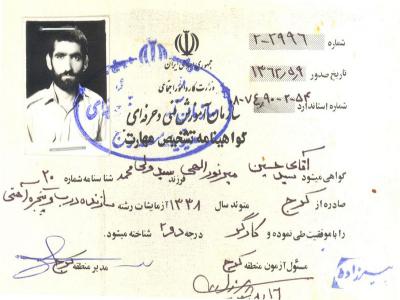 شماره ۲-۲۹۹۶
جمهوری اسلامی ایران
تاریخ صدور ۱۳۶۲/۵/۹
وزارت کار و امور اجتماعی
شماره استاندارد ۸-۷۴,۹۰-۲-۵۴
سازمان آموزش فنی و حرفه‌ای
گواهینامه تشخیص مهارت
گواهی میشود آقای سید حسین میرنورالهی فرزند سید ولی محمد شناسنامه شماره ۲۰
صادره از کرج متولد سال ۱۳۳۸ آزمایشات رشته سازنده درب و پنجره آهنی
را با موفقیت طی نموده و کارگر درجه دو ۲ شناخته میشود.
مسئول آزمون منطقه کرج
مدیر منطقه کرج